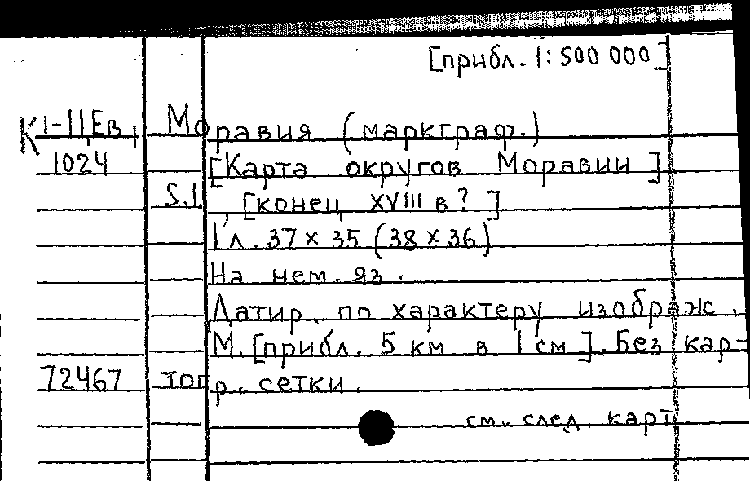 [прибл. 1: 500 000]
К 1-11,Ев, Моравия (маркграф.)
1024 [Карта округов Моравии]
S.l., [конец XVIII в?]
1 л. 37 × 35 (38 × 36)
На нем. яз.
Датир. по характеру изображ.
М. [прибл. 5 км в 1 см]. Без кар-
72467 тогр. сетки.
см. след карт